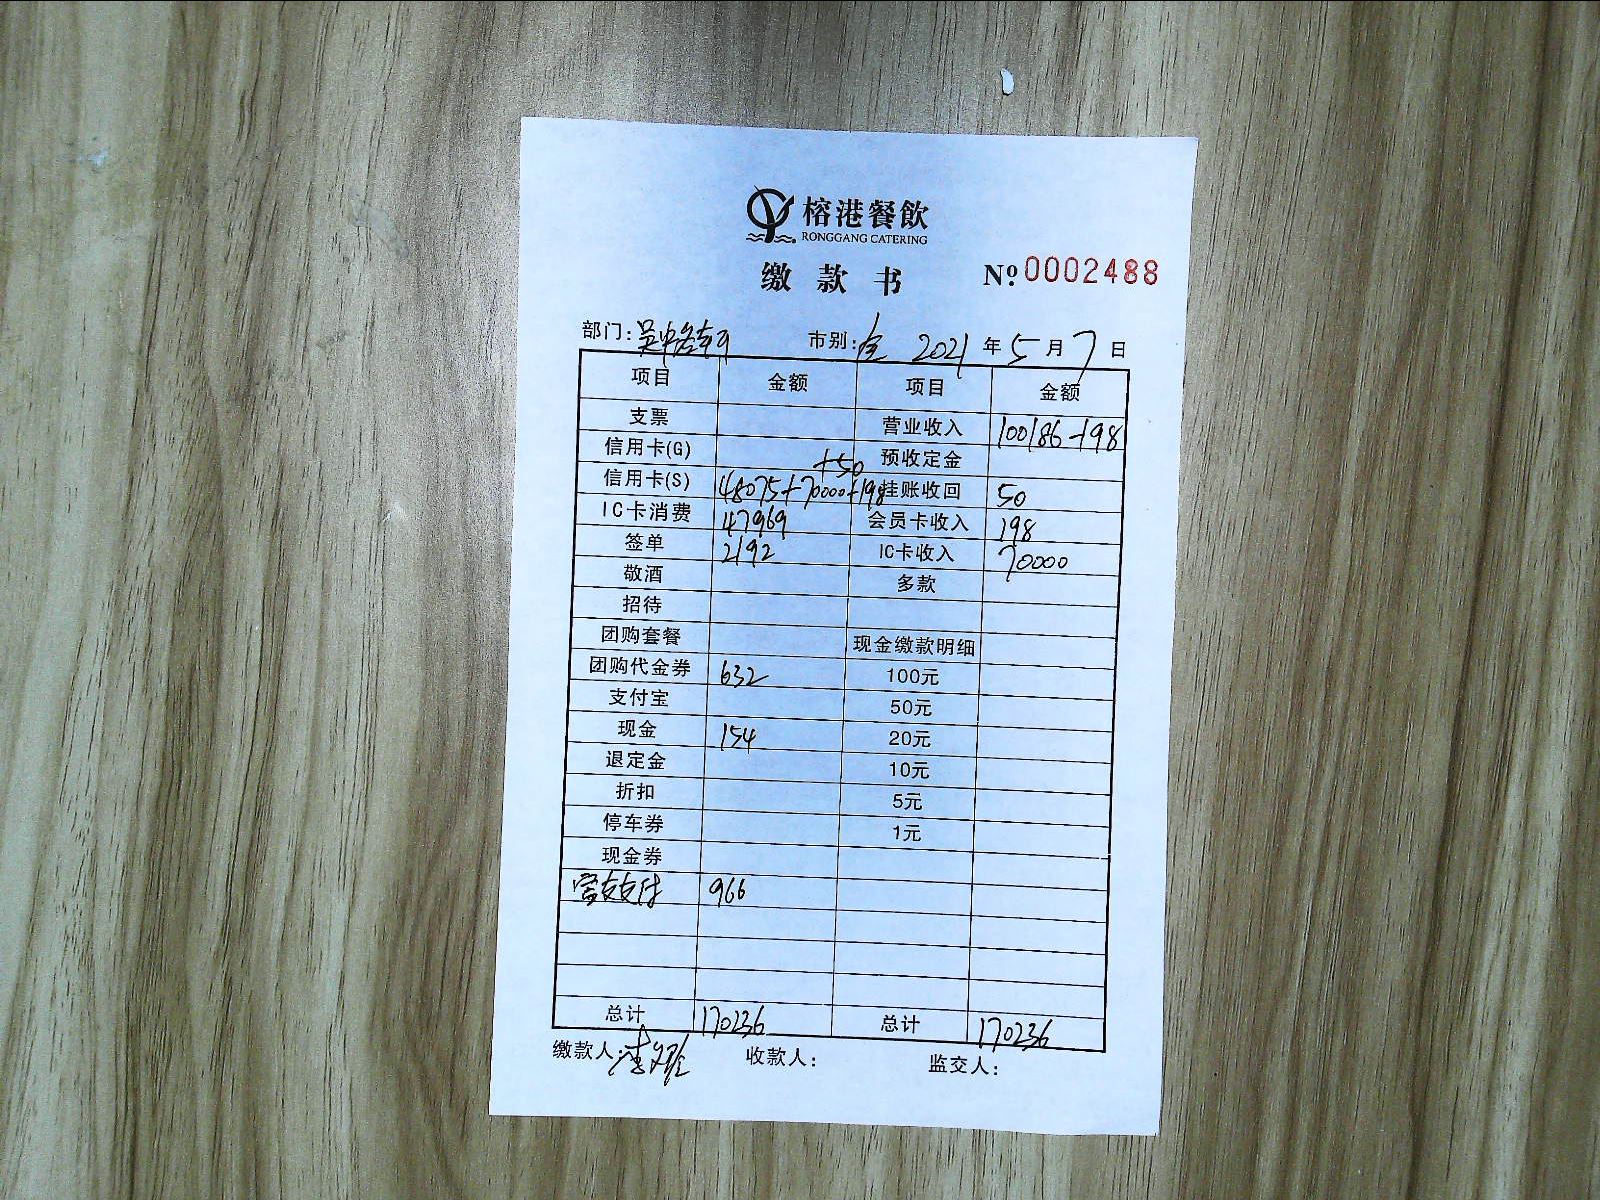 榕港餐飲
RONGGANG CATERING
缴款书 № 0002488
部门: 市别:全 2021年5月7日
项目 金额 项目 金额
支票 营业收入 100186-198
信用卡(G) 预收定金
信用卡(S) 48075+70000+198+50 挂账收回 50
IC卡消费 47969 会员卡收入 198
签单 2192 IC卡收入 70000
敬酒 多款
招待
团购套餐 现金缴款明细
团购代金券 632 100元
支付宝 50元
现金 154 20元
退定金 10元
折扣 5元
停车券 1元
现金券
支付 966
总计 170236 总计 170236
缴款人:李 收款人: 监交人: